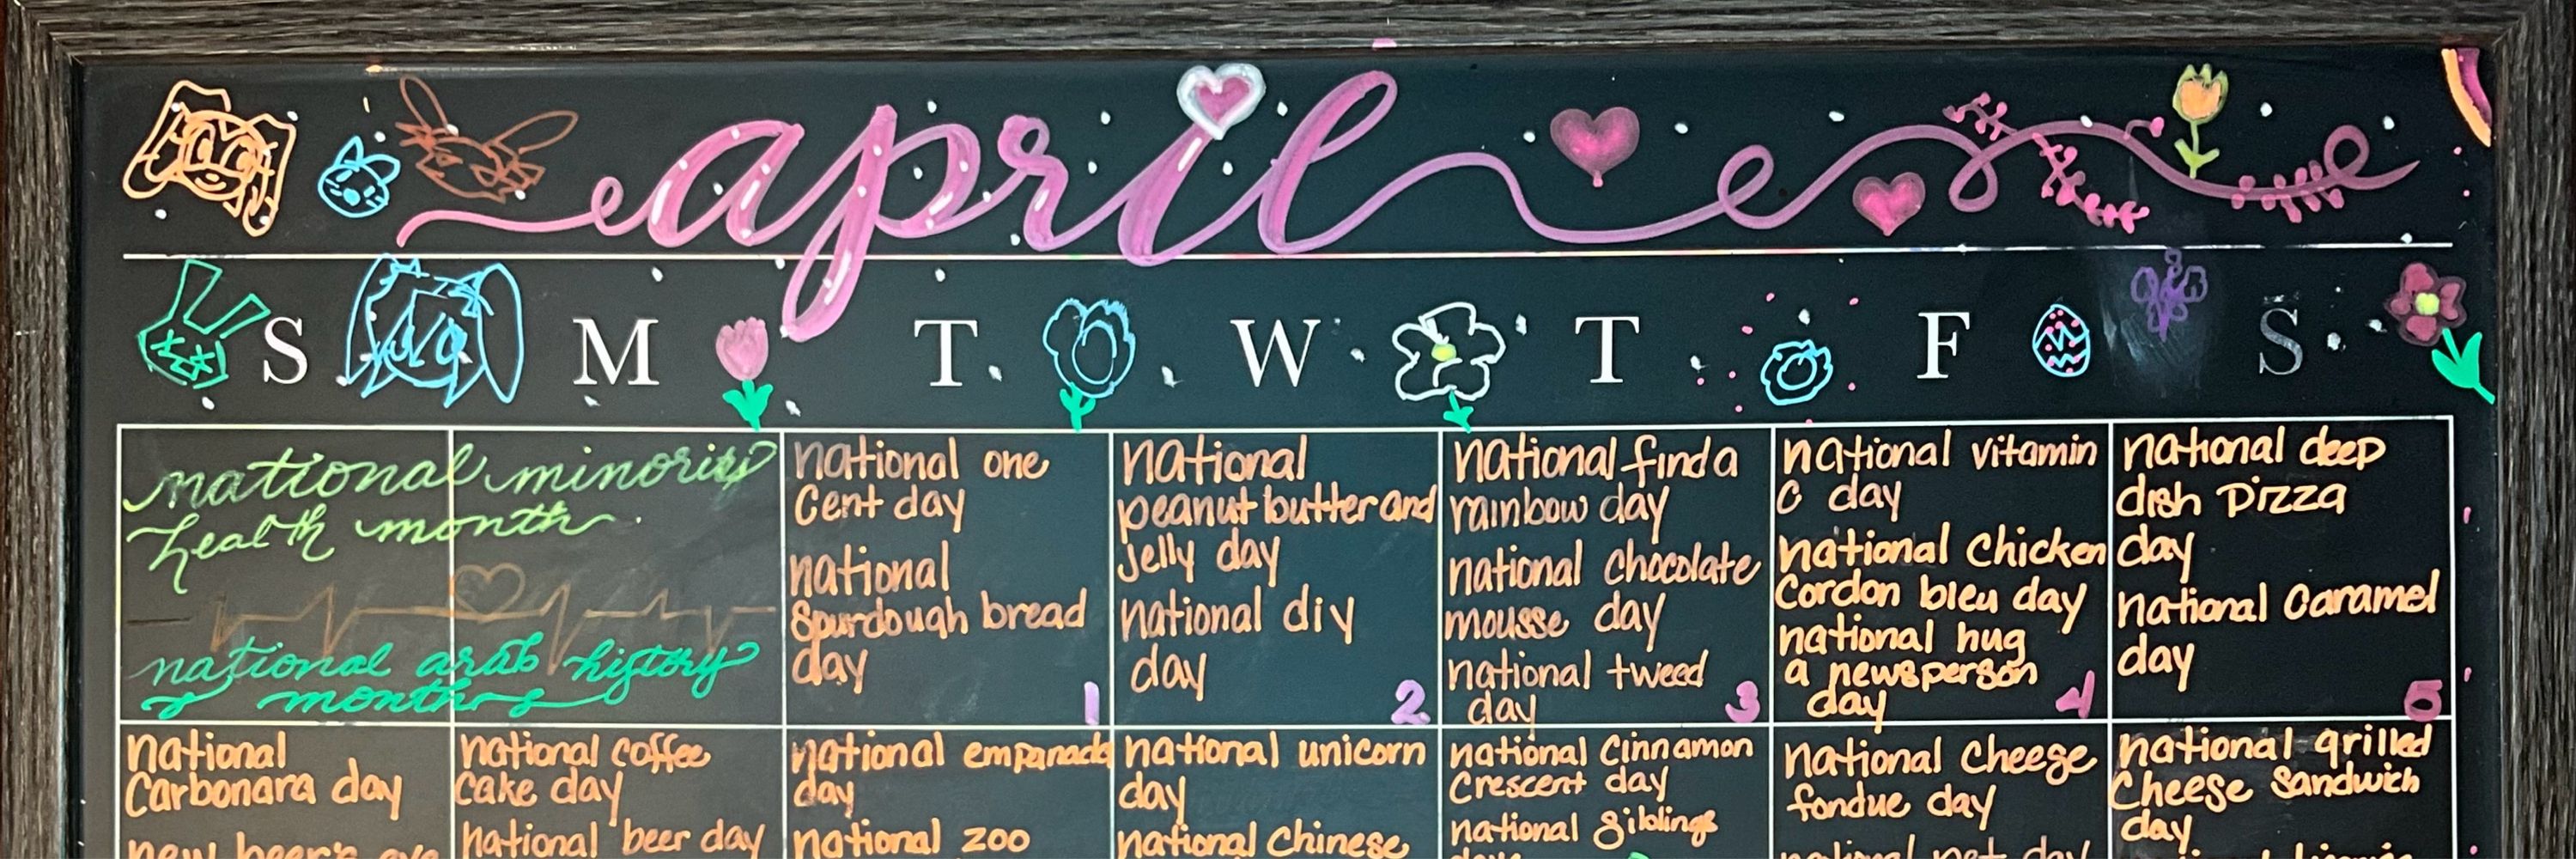 april
S M T W T F S
national minority
health month
national arab history
month
national one
Cent day
national
sourdough bread
day
1
national
peanut butter and
jelly day
national diy
day
2
national find a
rainbow day
national chocolate
mousse day
national tweed
day
3
national vitamin
C day
national chicken
Cordon bleu day
national hug
a newsperson
day
4
national deep
dish pizza
day
national caramel
day
5
national
Carbonara day
new beer's eve
national coffee
cake day
national beer day
national empanada
day
national zoo
national unicorn
day
national Chinese
national Cinnamon
Crescent day
national siblings
national cheese
fondue day
national pet day
national grilled
Cheese Sandwich
day